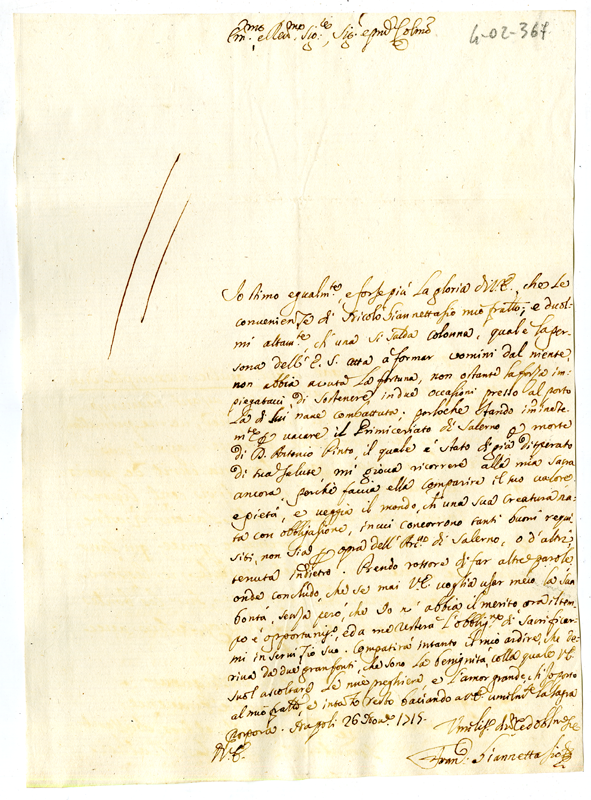 4-02-367
Em.mo e Rev.mo Sig.re, Sig.r e pad.n Colmo
Io stimo egualm.te, e forse più la gloria di V.E., che le
convenienze di Nicolò Giannettasio mio fratto, e duol-
mi altam.te, ch'una sì salda colonna, qual'è la per-
sona dell'E.S. atta a formar uomini dal niente,
non abbia avuta la fortuna, non ostante la forza im-
piegatavi di sostenere in due occasioni presso al porto
la di lui nave combattuta. perloche stando
vacare il Primiceriato di Salerno p morte
di D. Antonio Pinto, il quale è stato di già disperato
di sua salute mi giova ricorrere alla mia sacra
ancora, perchè faccia ella comparire il suo valore,
e pietà, e veggia il mondo, ch'una sua creatura na-
ta con obbligazione, in cui concorrono tanti buoni requi-
siti, non sia p opra dell' di Salerno, o d'altri
tenuta indietro. Prendo rossore di far altre parole,
onde conchiudo, che se mai V.E. voglia usar meco la sua
bontà, senza però, che io n'abbia il merito, ora il tem-
po è opportuno, ed a me resterà l'obbligo di sacrificar-
mi in servizio suo. Compatirà intanto il mio ardire, che de-
riva da due gran fonti, che sono la benignità, colla quale V.E.
suol ascoltare le mie preghiere, e l'amor grande, ch'io porto
al mio fratto, e intanto resto baciando a V.E. umilm.te la sagra
Porpora. Napoli 26 1715.
V.E.
Umiliss.
Fran.co Giannettasio